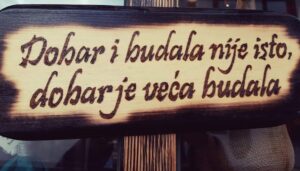 Dobar i budala nije isto,
dobar je veća budala